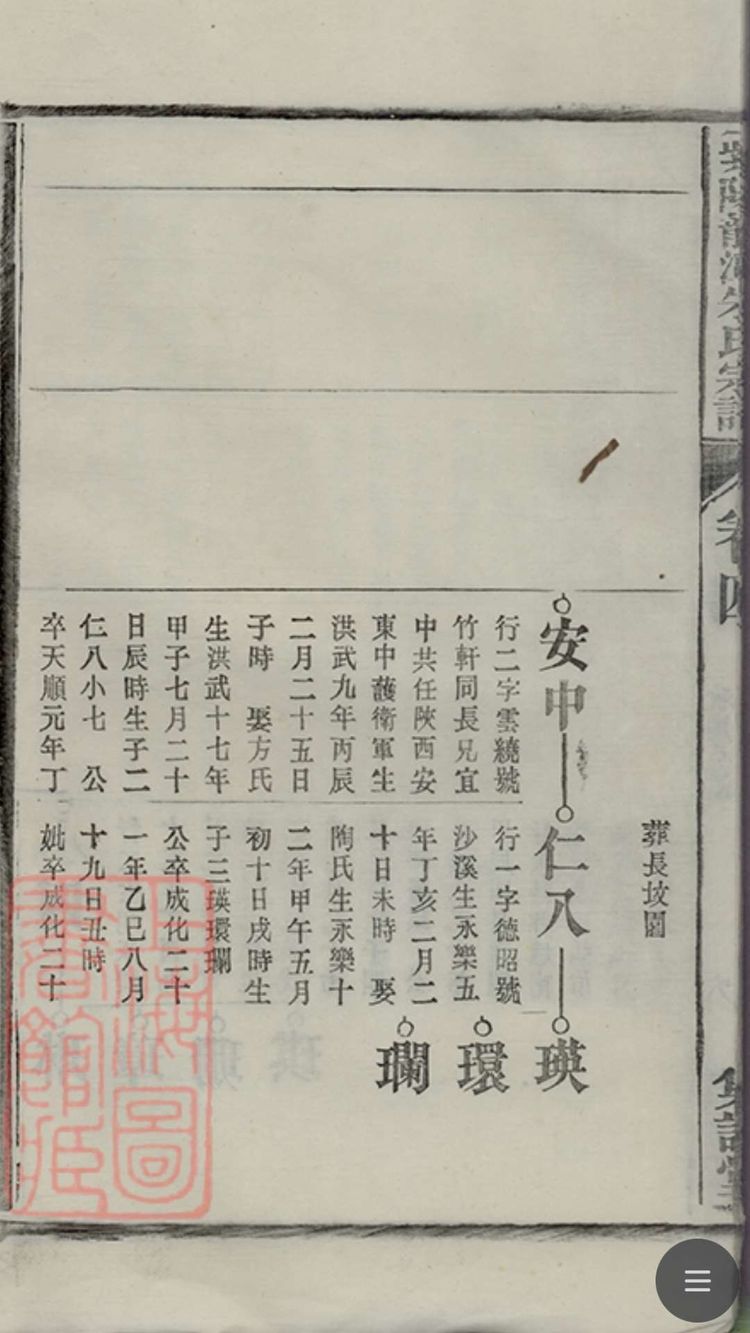 氏宗譜
卷四
葬長坟園
安中
行二字雲繞號
竹軒同長兄宜
中共任陝西安
東中護衛軍生
洪武九年丙辰
二月二十五日
子時 娶方氏
生洪武十七年
甲子七月二十
日辰時生子二
仁八小七 公
卒天順元年丁
仁八
行一字德昭號
沙溪生永樂五
年丁亥二月二
十日未時 娶
陶氏生永樂十
二年甲午五月
初十日戌時生
子三瑛環瓓
公卒成化二十
一年乙巳八月
十九日丑時
妣卒成化二十
瑛
環
瓓
上海圖
書館藏